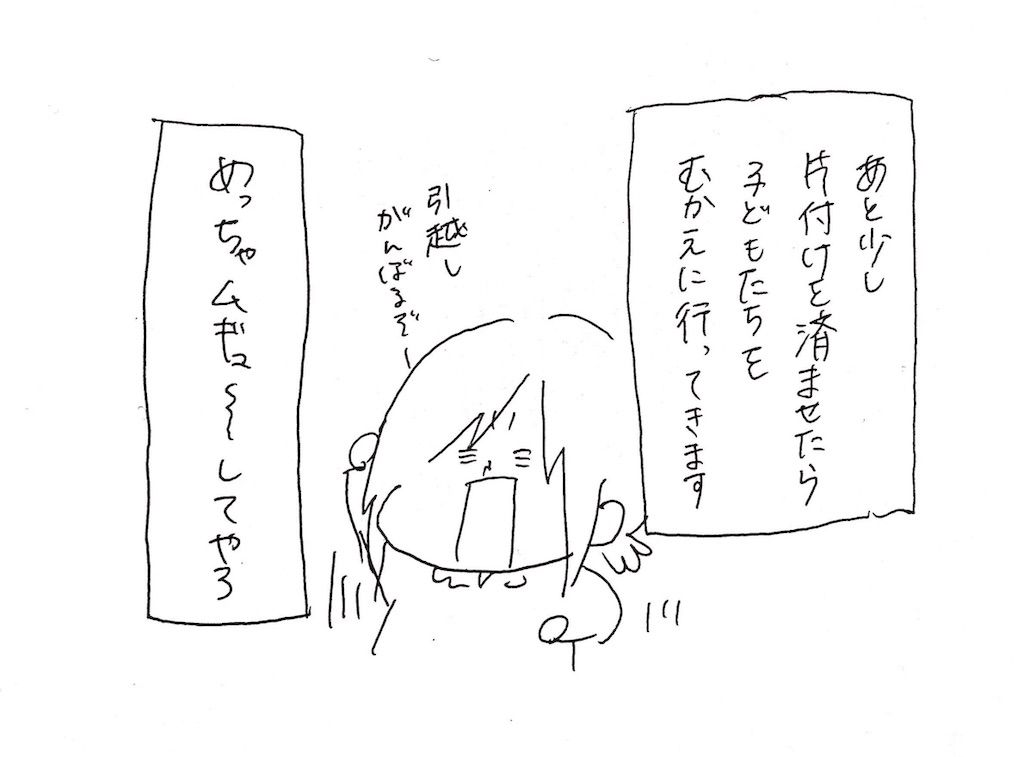 あと少し
片付けを済ませたら
子どもたちを
むかえに行ってきます
引越し
がんばるぞー
めっちゃムギュ〜〜してやろ